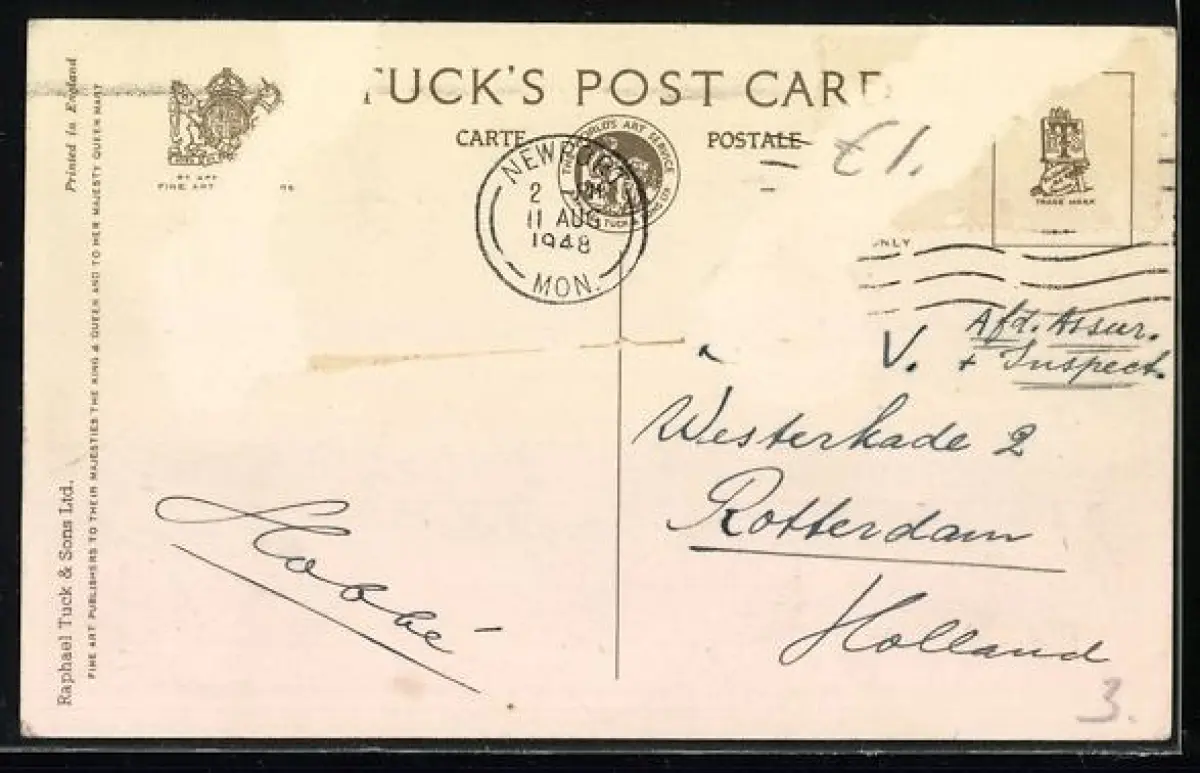 TUCK'S POST CARD
CARTE POSTALE
THE WORLD'S ART SERVICE
TUCK & SONS LTD
NEWPORT
2
11 AUG
1948
MON.
£1.
T
TRADE MARK
FINE ART
ONLY
Printed in England
Raphael Tuck & Sons Ltd.
FINE ART PUBLISHERS TO THEIR MAJESTIES THE KING & QUEEN AND TO HER MAJESTY QUEEN MARY
Afd. Assur.
V. + Inspect.
Westerkade 2
Rotterdam
Holland
3.